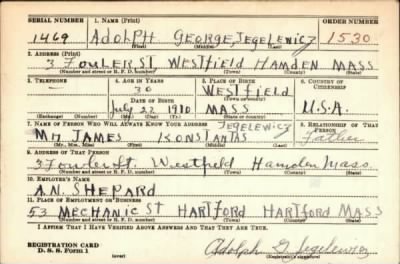 SERIAL NUMBER 1. NAME (Print) ORDER NUMBER
1469 ADOLPH GEORGE JEGELEWICZ 1530
(First) (Middle) (Last)
2. ADDRESS (Print)
3 FOWLER ST. WESTFIELD HAMDEN MASS
(Number and street or R. F. D. number) (Town) (County) (State)
3. TELEPHONE 4. AGE IN YEARS 5. PLACE OF BIRTH 6. COUNTRY OF CITIZENSHIP
30 WESTFIELD
DATE OF BIRTH (Town or county)
July 22 1910 MASS U.S.A.
(Exchange) (Number) (Mo.) (Day) (Yr.) (State or country)
7. NAME OF PERSON WHO WILL ALWAYS KNOW YOUR ADDRESS JEGELEWICZ 8. RELATIONSHIP OF THAT PERSON
MR JAMES KONSTANTAS Father
(Mr., Mrs., Miss) (First) (Middle) (Last)
9. ADDRESS OF THAT PERSON
3 Fowler St. Westfield Hamden Mass.
(Number and street or R. F. D. number) (Town) (County) (State)
10. EMPLOYER'S NAME
A.N. SHEPARD
11. PLACE OF EMPLOYMENT OR BUSINESS
53 MECHANIC ST HARTFORD HARTFORD MASS
(Number and street or R. F. D. number) (Town) (County) (State)
I AFFIRM THAT I HAVE VERIFIED ABOVE ANSWERS AND THAT THEY ARE TRUE.
REGISTRATION CARD
D. S. S. Form 1 (over) Adolph G Jegelewicz
(Registrant's signature)